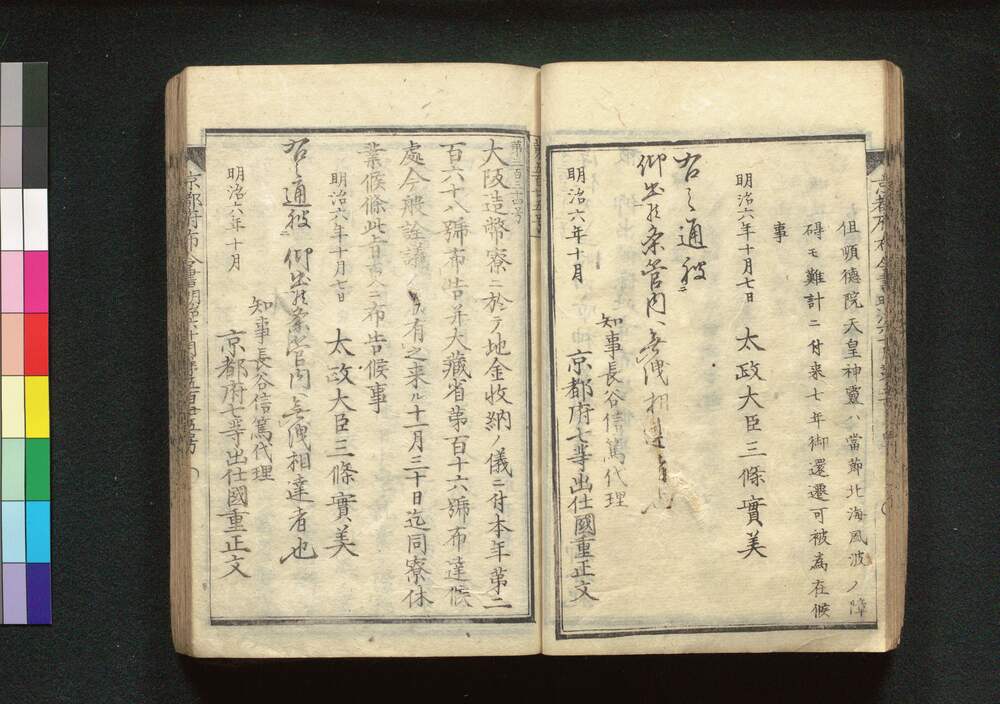 但順德院天皇神霊ハ當節北海風波ノ障
碍モ難計ニ付来七年御還遷可被為在候
事
明治六年十月七日
太政大臣三條實美
右之通被
仰出候条管内ヘ無洩相達者也
明治六年十月
知事長谷信篤代理
京都府七等出仕國重正文
第三百三十四号
大阪造幣寮ニ於テ地金收納ノ儀ニ付本年第二
百六十八號布告并大藏省第百十六號布達候
處今般詮議ノ有之来ル十一月三十日迄同寮休
業候條此旨布告候事
明治六年十月七日
太政大臣三條實美
右之通被仰出候条管内無洩相達者也
明治六年十月
知事長谷信篤代理
京都府七等出仕國重正文
京都府布令書明治六年